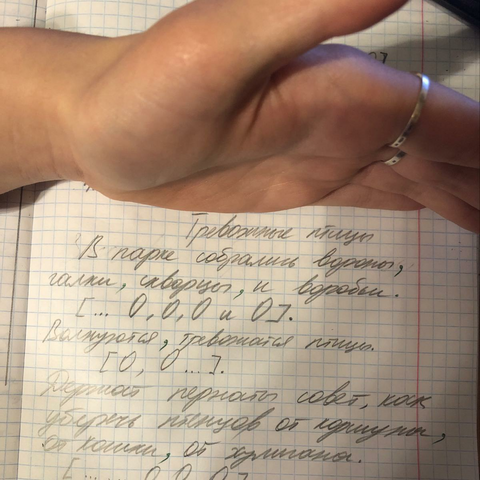 Тревожные птицы
В парке собрались вороны,
галки, скворцы, и воробьи.
[... О, О, О и О].
Волнуются, тревожатся птицы.
[О, О ...].
Держат пернаты совет, как
уберечь птенцов от коршуна,
от кошки, от хулигана.
[... О, О, О]